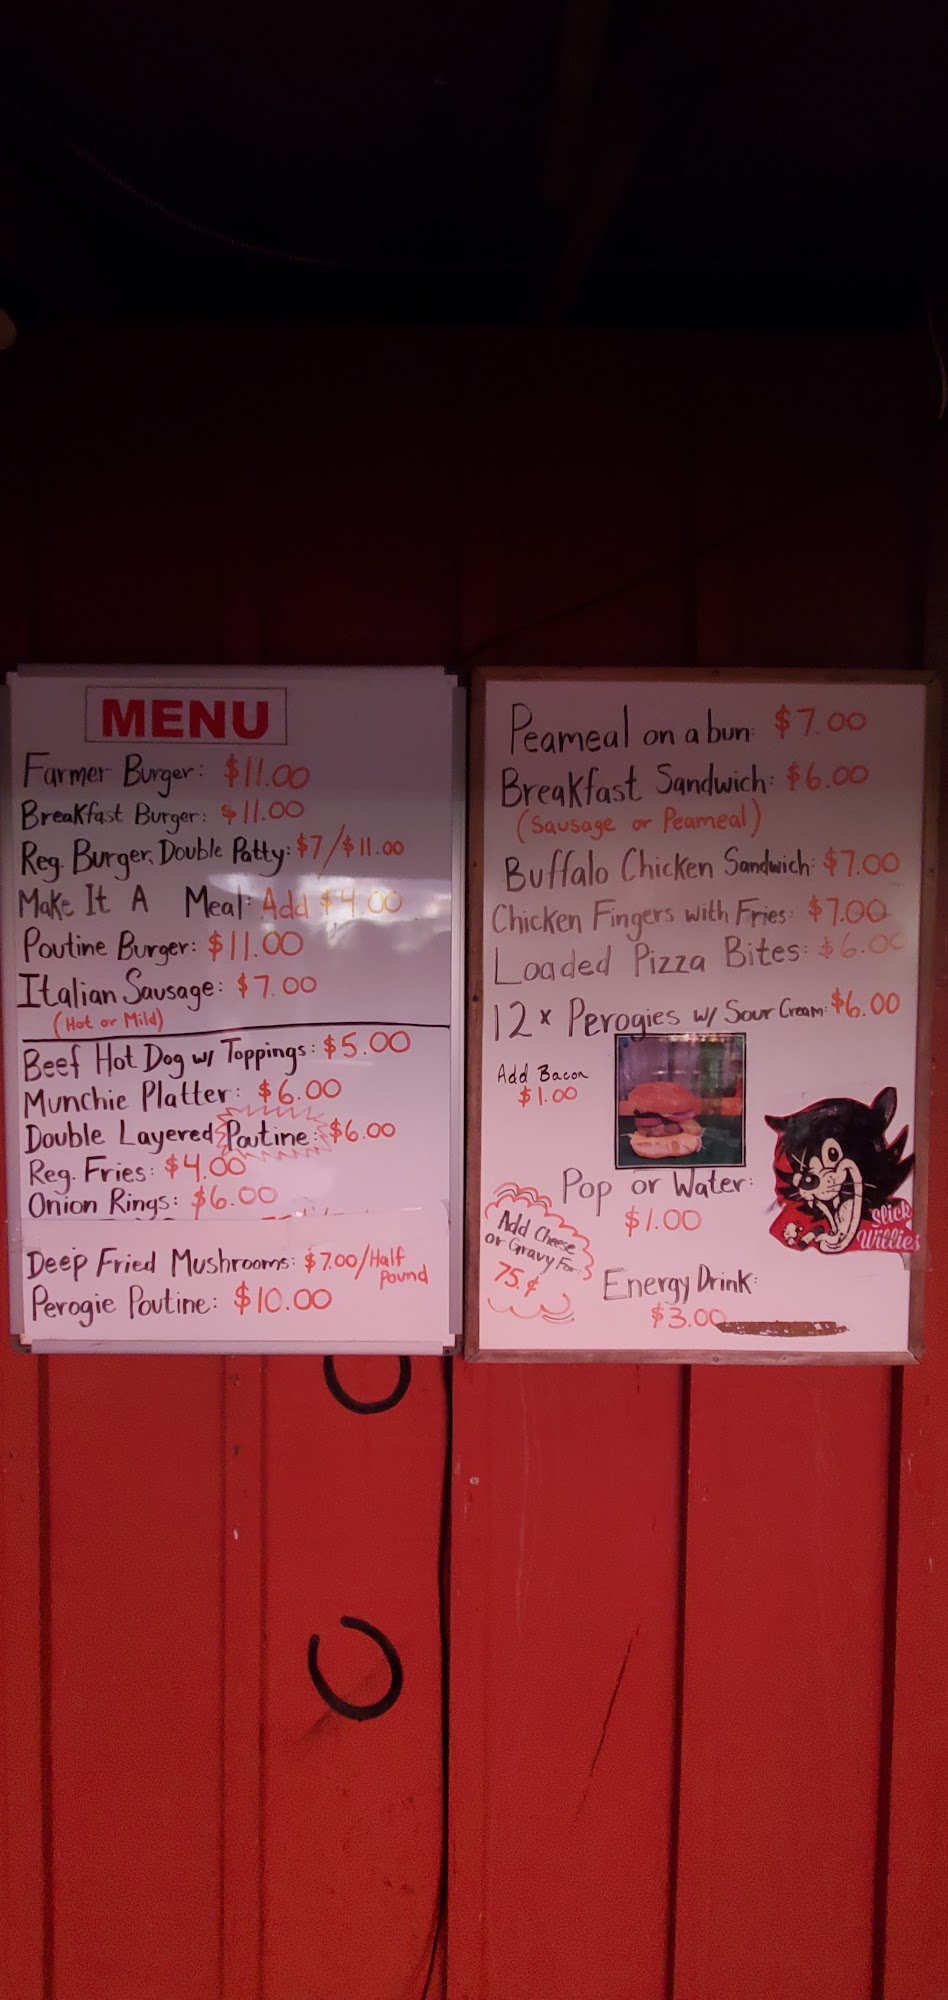 MENU
Farmer Burger: $11.00
Breakfast Burger: $11.00
Reg. Burger, Double Patty: $7/$11.00
Make It A Meal: Add $4.00
Poutine Burger: $11.00
Italian Sausage: $7.00
(Hot or Mild)
Beef Hot Dog w/ Toppings: $5.00
Munchie Platter: $6.00
Double Layered Poutine: $6.00
Reg. Fries: $4.00
Onion Rings: $6.00
Deep Fried Mushrooms: $7.00/Half
Pound
Perogie Poutine: $10.00
Peameal on a bun: $7.00
Breakfast Sandwich: $6.00
(Sausage or Peameal)
Buffalo Chicken Sandwich: $7.00
Chicken Fingers with Fries: $7.00
Loaded Pizza Bites: $6.00
12x Perogies w/ Sour Cream: $6.00
Add Bacon
$1.00
Pop or Water:
$1.00
Slick
Willies
Add Cheese
or Gravy For:
75.¢
Energy Drink:
$3.00